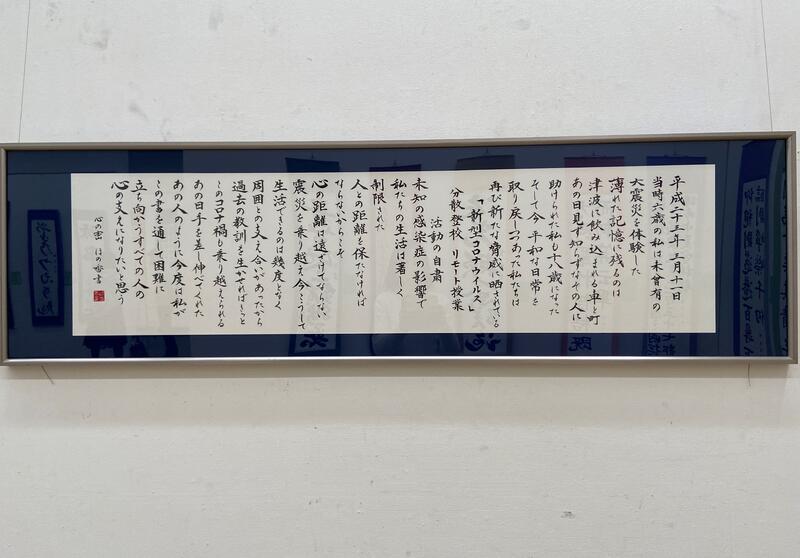 平成二十三年 三月十一日
当時六歳の私は未曾有の
大震災を体験した
薄れた記憶に残るのは
津波に飲み込まれる車と町
あの日見ず知らずなその人に
助けられた私も十八歳になった
そして今 平和な日常を
取り戻しつつあった私たちは
再び新たな脅威に晒されている
「新型コロナウイルス」
分散登校 リモート授業
活動の自粛
未知の感染症の影響で
私たちの生活は著しく
制限された
人との距離を保たなければ
ならないからこそ
心の距離は遠ざけてならない
震災を乗り越え今こうして
生活できるのは幾度となく
周囲との支え合いがあったから
過去の教訓を生かせればきっと
このコロナ禍も乗り越えられる
あの日手を差し伸べてくれた
あの人のように今度は私が
この書を通して困難に
立ち向かうすべての人の
心の支えになりたいと思う
心の
ほの
書